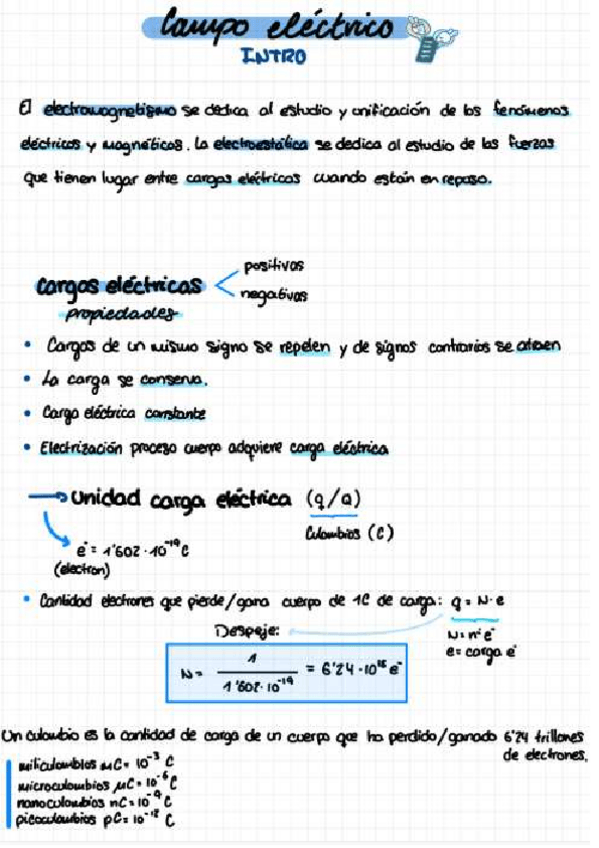 Campo eléctrico
INTRO
El electromagnetismo se dedica al estudio y unificación de los fenómenos
eléctricos y magnéticos. La electrostática se dedica al estudio de las fuerzas
que tienen lugar entre cargas eléctricas cuando están en reposo.
Cargas eléctricas
positivas
negativas
propiedades
• Cargas de un mismo signo se repelen y de signos contrarios se atraen
• La carga se conserva.
• Carga eléctrica constante
• Electrización proceso cuerpo adquiere carga eléctrica
→ Unidad carga eléctrica (q/Q)
Culombios (C)
e⁻ = 1'602 · 10⁻¹⁹ C
(electron)
• Cantidad electrones que pierde/gana cuerpo de 1C de carga: q = N · e
Despeje:
N = nº e⁻
e = carga e⁻
N = 1 / 1'602 · 10⁻¹⁹ = 6'24 · 10¹⁸ e⁻
Un culombio es la cantidad de carga de un cuerpo que ha perdido/ganado 6'24 trillones
de electrones.
miliculombios mC = 10⁻³ C
microculombios μC = 10⁻⁶ C
nanoculombios nC = 10⁻⁹ C
picoculombios pC = 10⁻¹² C